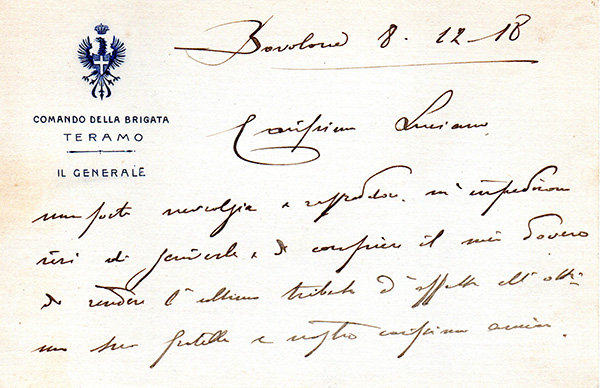 Bovolone 8-12-18
COMANDO DELLA BRIGATA
TERAMO
IL GENERALE
Carissimo Luciano
una forte nevralgia e raffreddore m'impedirono
ieri di scriverle e di compiere il mio dovere
di rendere l'ultimo tributo d'affetto all'otti-
mo suo fratello e nostro carissimo amico.